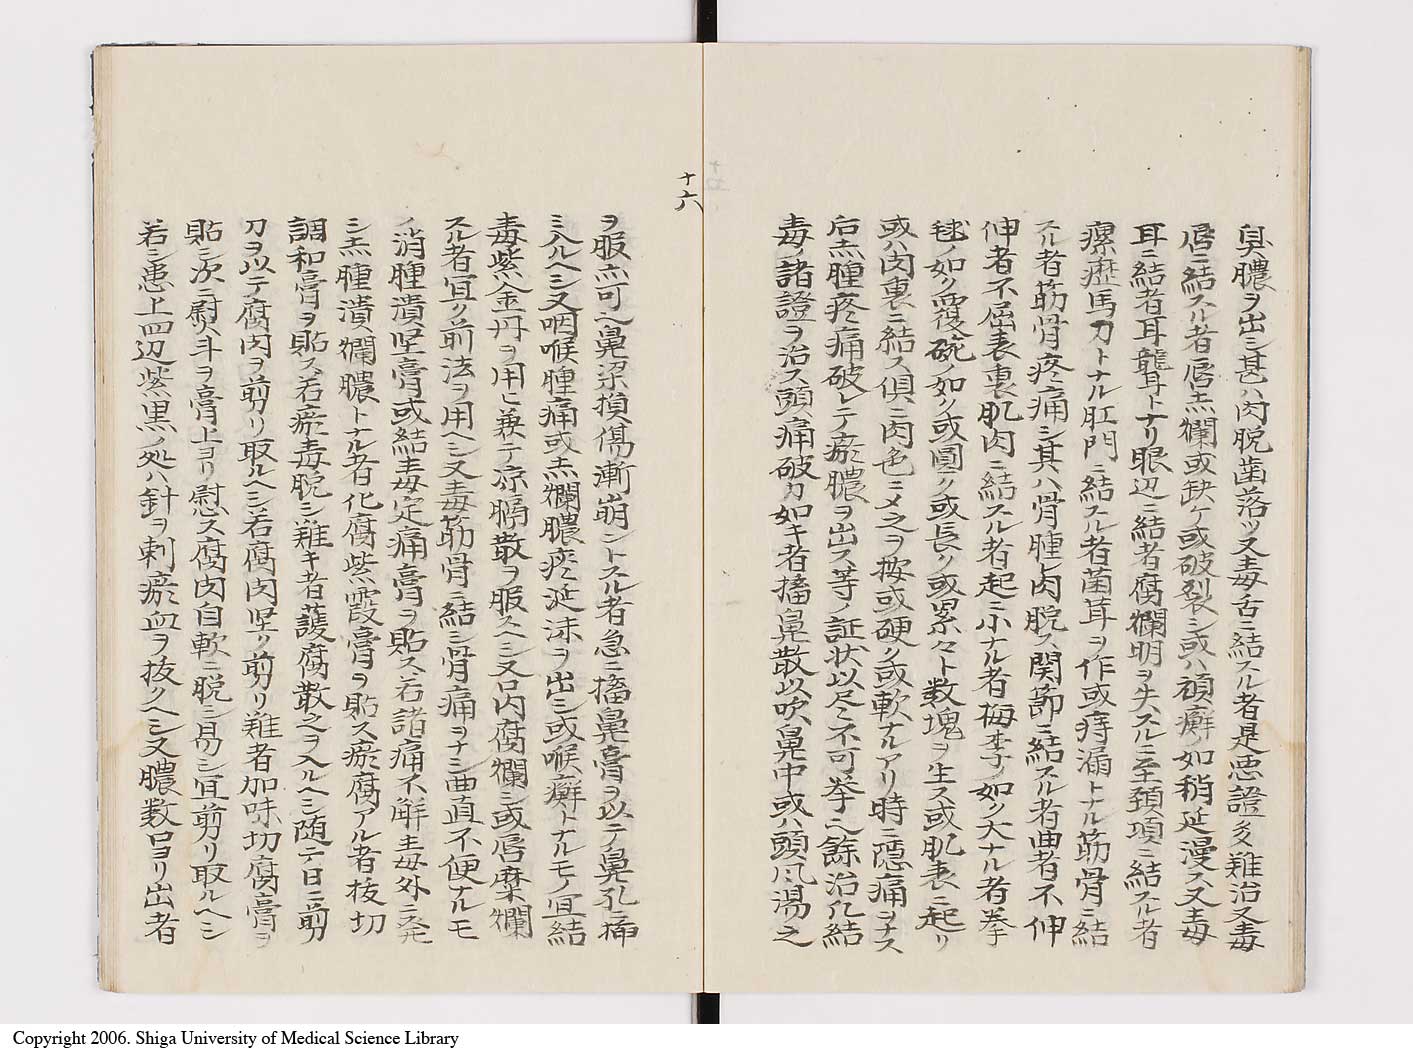 臭膿ヲ出シ甚ハ肉脱歯落ツ又毒舌ニ結スル者是悪證多難治又毒
唇ニ結スル者唇赤爛或缺ケ或破裂シ或ハ頑癬ノ如稍延漫ス又毒
耳ニ結者耳聾トナリ眼辺ニ結者腐爛明ヲ失スルニ至頚項ニ結スル者
瘰癧馬刀トナル肛門ニ結スル者菌茸ヲ作或痔漏トナル筋骨ニ結
スル者筋骨疼痛シ甚ハ骨腫レ肉脱ス関節ニ結スル者曲者不伸
伸者不屈表裏肌肉ニ結スル者起ニ小ナル者梅李ノ如ク大ナル者拳
毬ノ如ク覆碗ノ如ク或圓ク或長ク或累々ト数塊ヲ生ス或肌表ニ起リ
或ハ肉裏ニ結ス倶ニ肉色ニメ之ヲ按或硬ク或軟ナルアリ時ニ隠痛ヲナス
后赤腫疼痛破レテ瘀膿ヲ出ス等ノ証状以尽ク不可挙ヘ餘治凡結
毒ノ諸證ヲ治ス頭痛破カ如キ者搐鼻散以吹鼻中或ハ頭風湯之
十六
ヲ服亦可ヘ鼻梁損傷漸崩ントスル者急ニ搐鼻膏ヲ以テ鼻孔ニ挿
ミ入ルヘシ又咽喉腫痛或赤爛膿痰涎沫ヲ出シ或喉癬トナルモノ宜結
毒紫金丹ヲ用ヒ兼テ涼膈散ヲ服スヘシ又口内腐爛シ或唇糜爛
スル者宜ク前法ヲ用ヘシ又毒筋骨ニ結シ骨痛ヲナシ曲直不便ナルモ
ノ消腫潰堅膏或結毒定痛膏ヲ貼ス若諸痛不解毒外ニ発
シ赤腫潰爛膿トナル者化腐紫霞膏ヲ貼ス瘀腐アル者抜切
調和膏ヲ貼ス若瘀毒脱シ難キ者護腐散之ヲ入ルヘシ随テ日ニ剪
刀ヲ以テ腐肉ヲ剪リ取ルヘシ若腐肉堅ク剪リ難者加味切腐膏ヲ
貼シ次ニ熨斗ヲ膏上ヨリ熨ス腐肉自軟ニ脱シ易シ宜剪リ取ルヘシ
若シ患上四辺紫黒ノ処ハ針ヲ刺瘀血ヲ抜クヘシ又膿数口ヨリ出者
Copyright 2006. Shiga University of Medical Science Library